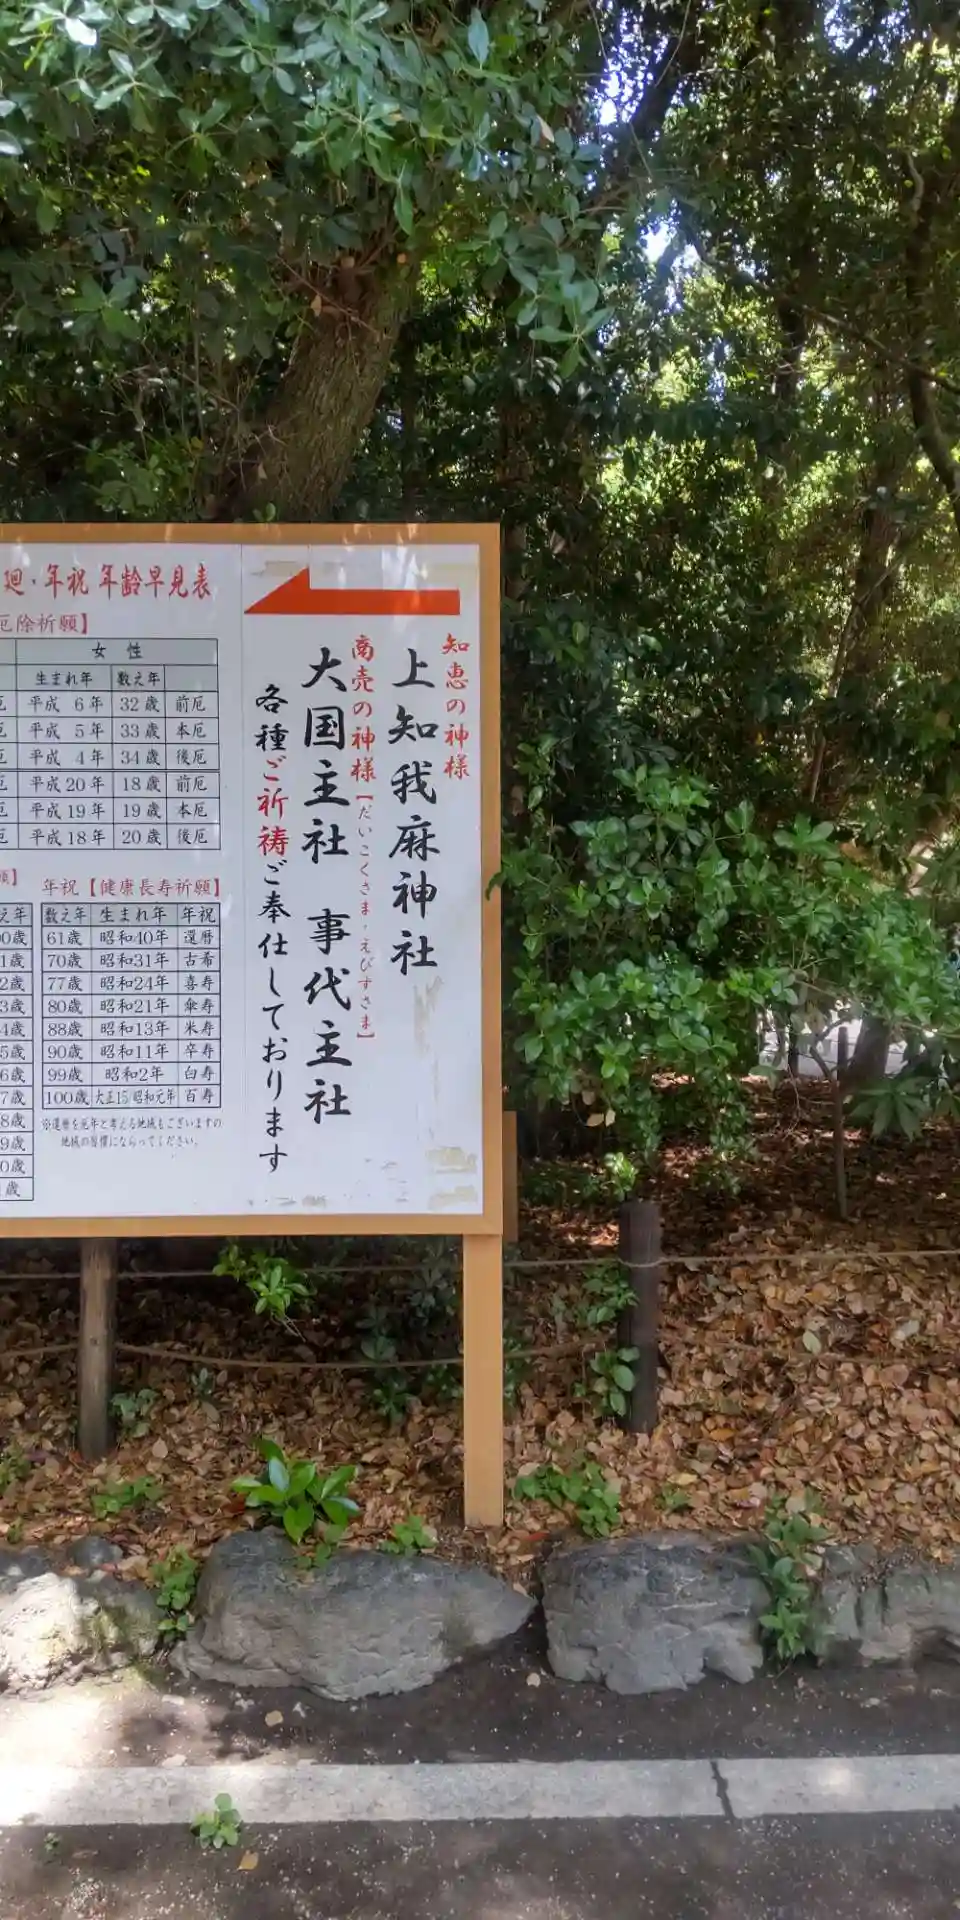 知恵の神様
上知我麻神社
商売の神様【だいこくさま・えびすさま】
大国主社 事代主社
各種ご祈祷ご奉仕しております
廻・年祝 年齢早見表
厄除祈願】
女 性
生まれ年 数え年
厄 平成 6年 32歳 前厄
厄 平成 5年 33歳 本厄
厄 平成 4年 34歳 後厄
厄 平成20年 18歳 前厄
厄 平成19年 19歳 本厄
厄 平成18年 20歳 後厄
願】
え年
0歳
1歳
2歳
3歳
4歳
5歳
6歳
7歳
8歳
9歳
0歳
歳
年祝【健康長寿祈願】
数え年 生まれ年 年祝
61歳 昭和40年 還暦
70歳 昭和31年 古希
77歳 昭和24年 喜寿
80歳 昭和21年 傘寿
88歳 昭和13年 米寿
90歳 昭和11年 卒寿
99歳 昭和2年 白寿
100歳 大正15昭和元年 百寿
※還暦を厄年と考える地域もございますの
地域の習慣にならってください。